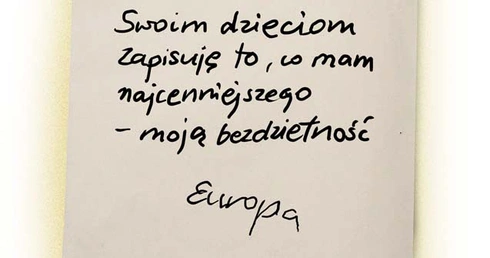 Swoim dzieciom
zapisuję to, co mam
najcenniejszego
– moją bezdzietność
Europa